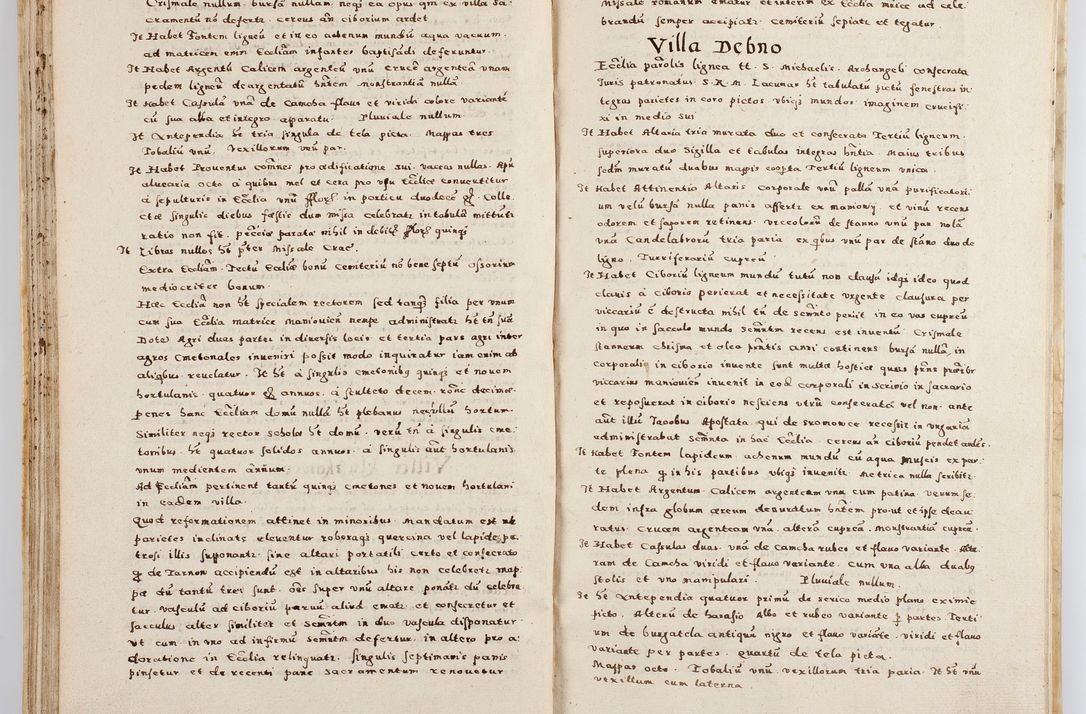 Crismale nullum. bursã nullam. neqз ea opus qm̃ ex villa sa
cramentũ nõ defertr. cereus añ ciborium ardet.
It Habet Fontem ligneũ et in eo aehenum mundũ aqua vacuum.
ad matricem em̃ Eccliam infantes baptisãdi deferuntur.
It Habet Argentũ Calicem argenteũ vnũ Crucẽ argenteã vnam
pedem ligneũ deargentatũ hñtem. monstrantiã nullã
It Habet Casulã vnã de Camcha flauo et viridi colore variantẽ
cũ sua alba et integro apparatu. Pluuiale nullum.
It Antependia ht tria singula de tela picta. Mappas tres
Tobaliũ vnũ. Vexillorum vnũ par.
It Habet Prouentus om̃nes pro ædificatione sui. vaccas nullas. Apũ
aluearia octo à quibus mel et cera pro vsu Eccliæ conuertitur
à sepulturis in Ecclia vnũ flor in porticu duodecẽ Colle
ctæ singulis diebus festis dum missa celebratr in tabulã mittũtr
ratio non fit. pecũia parata nihil in debitis flor quinqз
It Libros nullos ht pter Missale Crac.
Extra Eccliam. Tectũ Eccliæ bonũ Cemiteriũ nõ bene septũ ossorium
mediocriter bonum.
Hæc Ecclia non ht specialem rectorem sed tanqз filia per vnum
cum sua Ecclia matrice Maniouien nempe administratr ht tñ suã
Dotẽ Agri duas partes in diversis locis et tertia pars agri inter
agros Cmetonales inueniri possit modo inquiratur iam enim ab
aliqbus reuelatur. It ht à singulis cmetonibз quinqз et nouem
hortulanis quatuor annuos. à sculteto decem rõne decimæ.
penes hanc Eccliam domũ nullã ht plebanus neq ullũ hortum.
Similiter neqз rector scholæ ht domũ. verũ tñ à singulis cme
tonibus ht quatuor solidos annuos. à singulis aũt hortulanis
vnum medientem annũum.
Ad Eccliam pertinent tantũ quinqз Cmetones et nouem hortulani
in eadem villa.
Quod reformationem attinet in minoribus. Mandatum est vt
parietes inclinatæ eleuentur roborazi quercina vel lapide pe
trosi illis supponantr. sine altari portatili certo et consecrato
de Tarnow accipiendũ est in altaribus his non celebretr map
pæ dũ tantũ tres sunt. oẽs super vnũ altare ponãtr dũ celebra
tur. vasculũ ad ciboriũ paruũ aliud ematr et consecretur et
sacculus alter similiter et Semr̃tm in duo vascula disponatur
vt cum in vno ad infirmũ semr̃tm defertur. in altero pro a
doratione in Ecclia relinquatr. singulis septimanis panis
pinsetur et de recenti pane Sacramentum renouetur
Missale romanum ematur et interim ex Ecclia mrice ad cele
brandũ semper accipiatr. Cemiteriũ sepiatr et tegatur.
Villa Debno
Ecclia parolis lignea tt. S. Michaelis. Archangeli consecrata
Juris patronatus. S. R. M. Lacunar ht tabulatũ pictũ fenestras in
tegras parietes in coro pictos vbiqз mundos imaginem crucifi
xi in medio sui
It Habet Altaria tria murata duo et consecrata Tertiũ ligneum.
superiora duo Sigilla et tabulas integras hñtia. Maius tribus
secdm muratũ duabus mappis coopta Tertiũ ligneum vnica.
It Habet Attinentia Altaris Corporale vnũ pallã vnã purificatori
um velũ bursã nullã panis affertr ex maniow et vinũ recens
odorem et saporem retinens. vrceolorũ de stanno vnũ par nolã
vnã Candelabrorũ tria paria ex qbus vnũ par de stãno duo de
ligno. Turriferariũ cupreũ.
It Habet Ciboriũ ligneum mundũ tutũ non clausũ idqз ideo quod
clauis à ciborio perierat et necessitate vrgente clausura per
viccariũ ẽ destructa nihil tñ de semr̃to perijt in eo vas cupreũ
in quo in sacculo mundo semr̃tm recens est inuentũ Crismale
stanneum Chrisma et olea pñtis anni continens bursã nullã, in
corporali in ciborio inuente sunt multæ hostiæ quas pñs prior
viccarius maniouien inuenit in eod corporali in scrinio in sacrario
et reposuerat in ciborio nesciens vtrũ consecratæ vel non. ante
aũt illũ Jacobus Apostata. qui de Sromowce recessit in vngariã
administrabat semr̃ta in hac Ecclia. cereus añ ciboriũ pendet ardẽs.
It Habet Fontem lapideum. achenum mundũ cũ aqua museis ex par
te plena in his partibus vbiqз inuenitr. Metrica nulla scribitr.
It Habet Argentum. Calicem argenteum vnũ cum patina. verum se
dem infra globum æreum deauratum hñtem prout et ipse deau
ratus. Crucem argenteam vnã. alterã cupreã. Monstrantiã cupreã.
It Habet Casulas duas. vnã de Camcha rubeo et flauo variante. Alte
ram de Camcha viridi et flauo variante. Cum vna alba duabз
stolis et vno manipulari. Pluuiale nullum.
It ht Antependia quatuor primũ de serico medio plano eximie
picto. Alterũ de harasio Albo et rubeo variante p partes. Terti
um de burgatela antiquũ nigro et flauo variãte. viridi et flauo
variãte per partes. quartũ de tela picta.
Mappas octo. Tobaliũ vnũ. vexillorum tria paria. It ht vnũ
vexillum cum laterna.